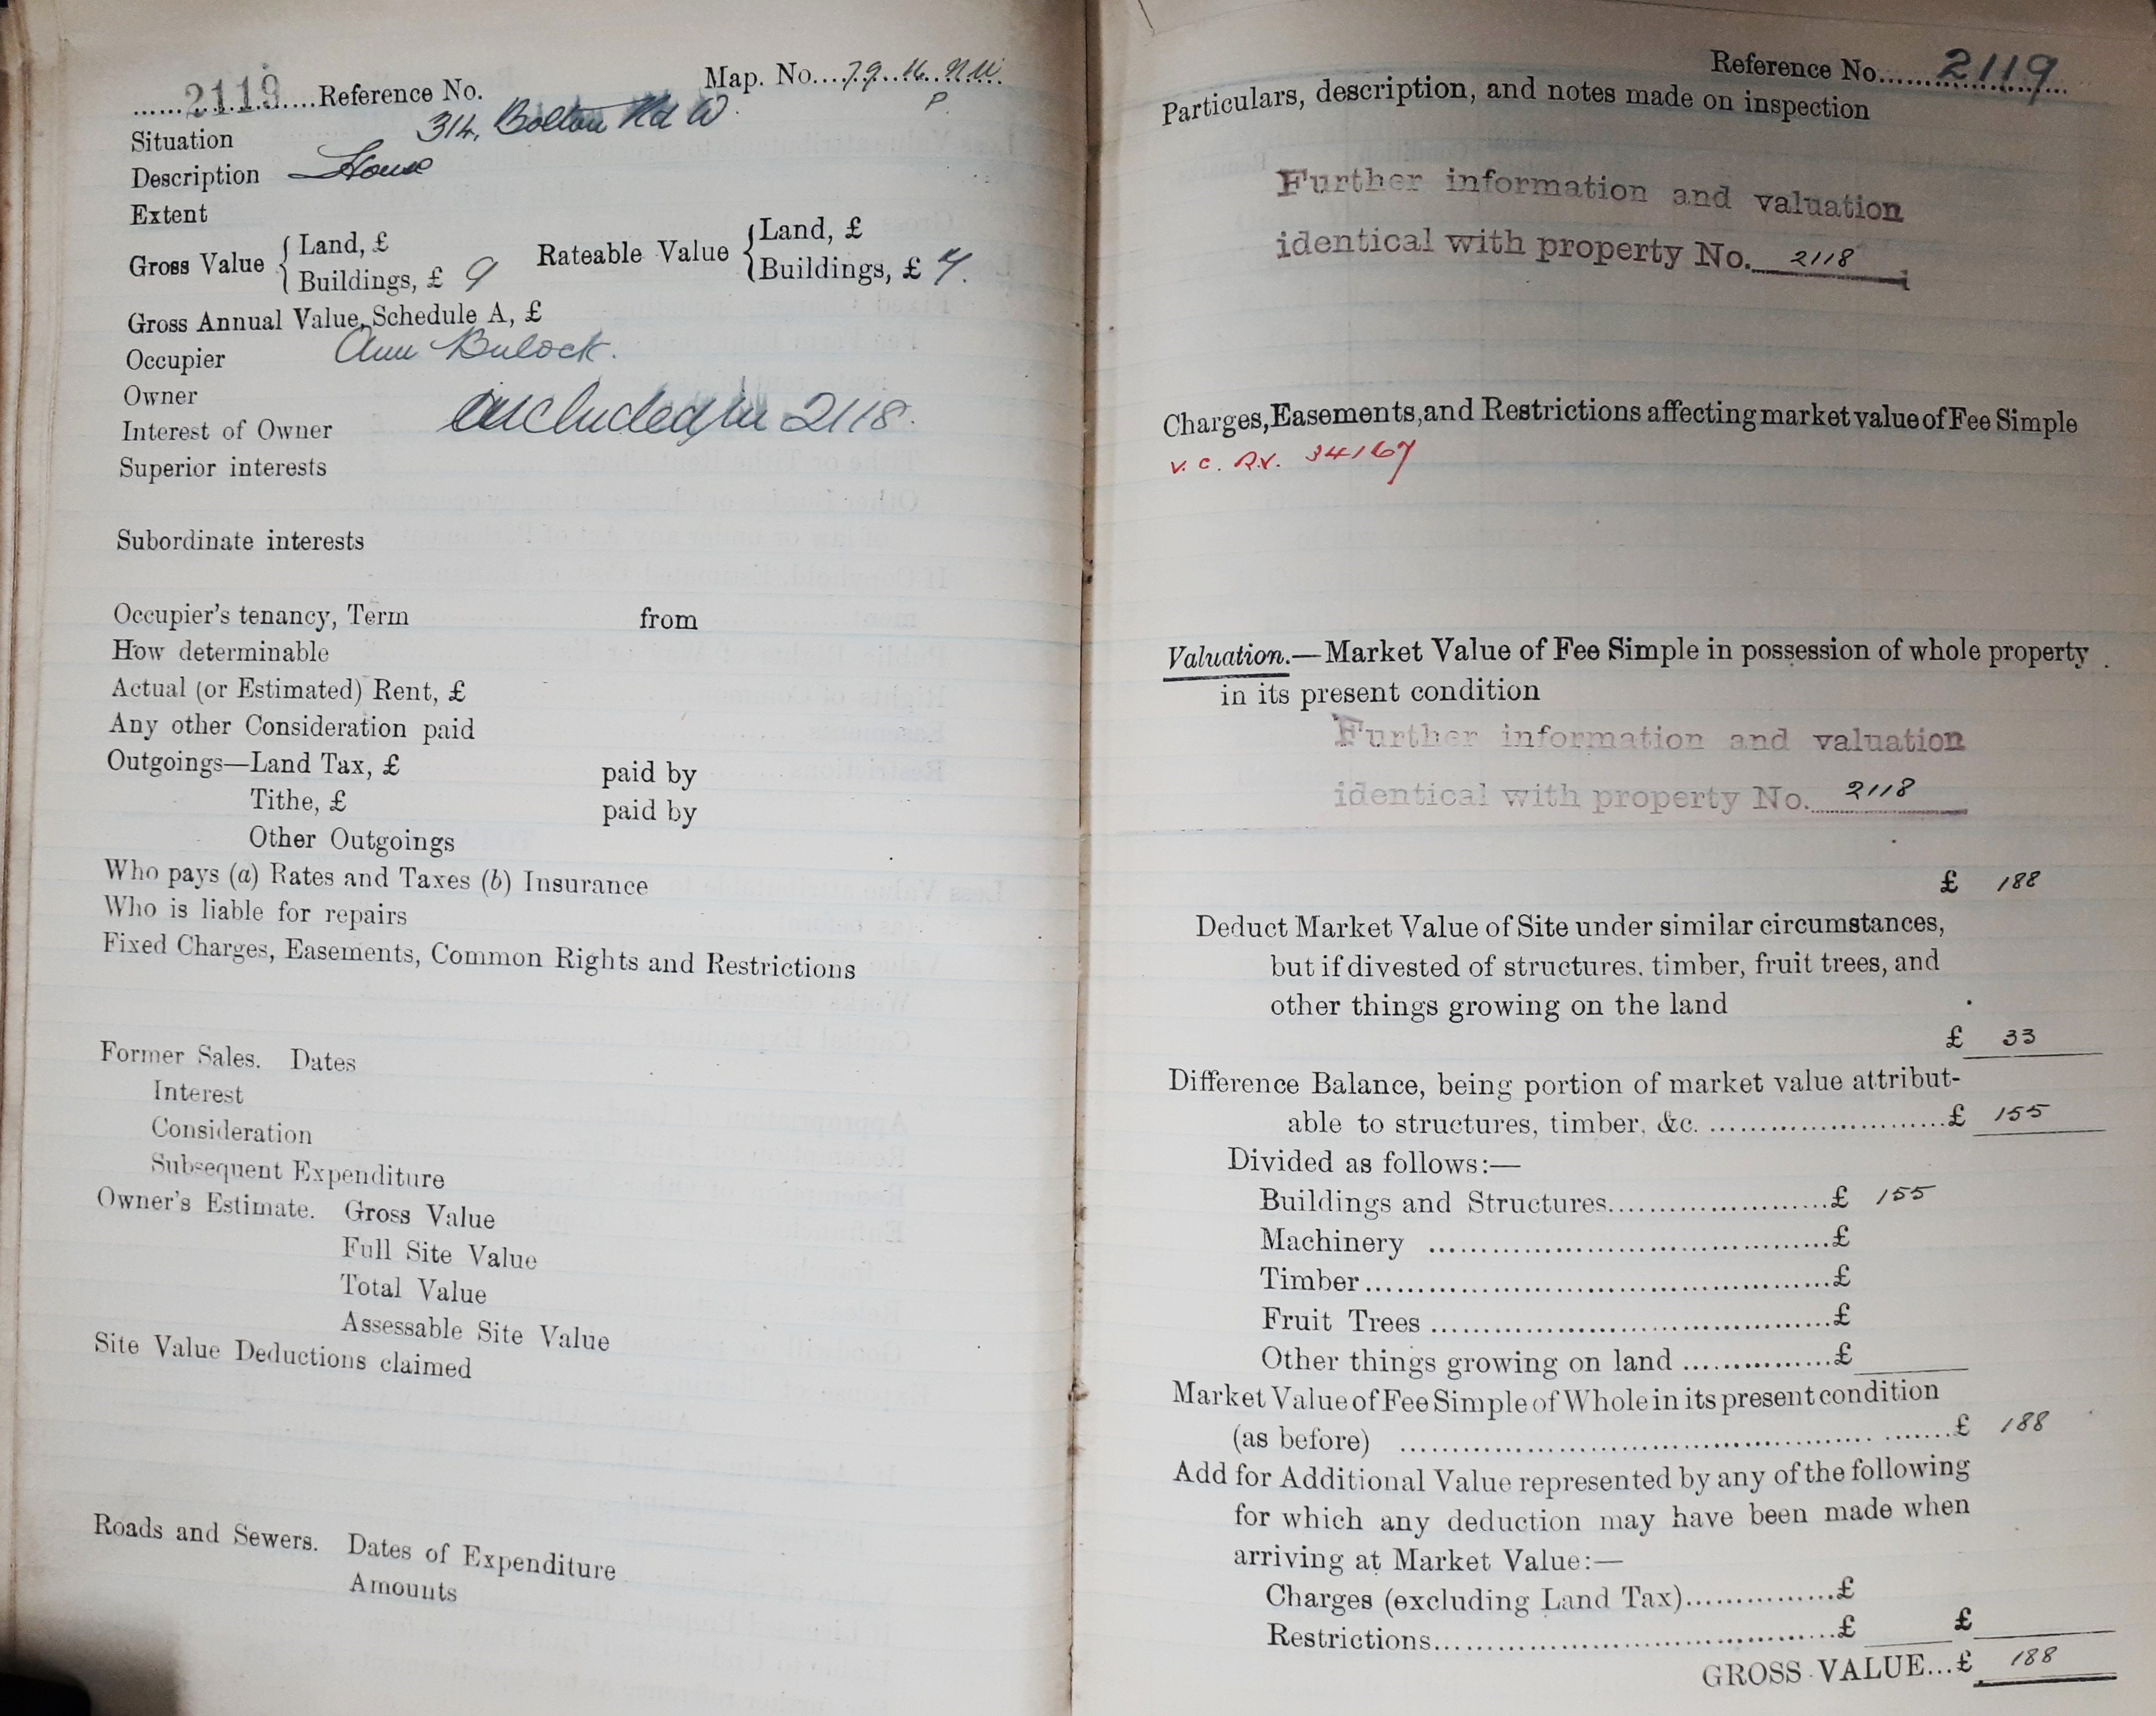 ......2119....Reference No. Map. No....79.16.N.W.
P.
Situation 314, Bolton Rd W.
Description House
Extent
Gross Value { Land, £
Buildings, £ 9
Rateable Value { Land, £
Buildings, £ 7.
Gross Annual Value, Schedule A, £
Occupier Ann Bulock.
Owner
Interest of Owner included in 2118.
Superior interests
Subordinate interests
Occupier's tenancy, Term from
How determinable
Actual (or Estimated) Rent, £
Any other Consideration paid
Outgoings—Land Tax, £ paid by
Tithe, £ paid by
Other Outgoings
Who pays (a) Rates and Taxes (b) Insurance
Who is liable for repairs
Fixed Charges, Easements, Common Rights and Restrictions
Former Sales. Dates
Interest
Consideration
Subsequent Expenditure
Owner's Estimate. Gross Value
Full Site Value
Total Value
Assessable Site Value
Site Value Deductions claimed
Roads and Sewers. Dates of Expenditure
Amounts
Reference No......2119
Particulars, description, and notes made on inspection
Further information and valuation
identical with property No. 2118
Charges, Easements, and Restrictions affecting market value of Fee Simple
v. c. R.V. 34167
Valuation.—Market Value of Fee Simple in possession of whole property
in its present condition
Further information and valuation
identical with property No. 2118
£ 188
Deduct Market Value of Site under similar circumstances,
but if divested of structures, timber, fruit trees, and
other things growing on the land
£ 33
Difference Balance, being portion of market value attribut-
able to structures, timber, &c. ..........................£ 155
Divided as follows:—
Buildings and Structures......................£ 155
Machinery ........................................£
Timber..............................................£
Fruit Trees ........................................£
Other things growing on land ...............£
Market Value of Fee Simple of Whole in its present condition
(as before) ......................................................£ 188
Add for Additional Value represented by any of the following
for which any deduction may have been made when
arriving at Market Value:—
Charges (excluding Land Tax)...............£
Restrictions.......................................£ £
GROSS VALUE...£ 188